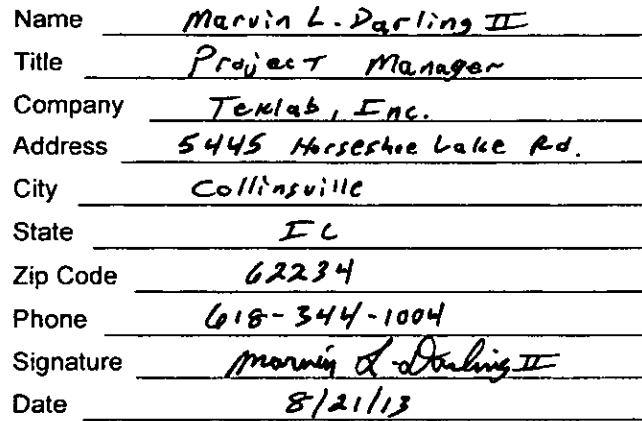 Name Marvin L. Darling II
Title Project Manager
Company Teklab, Inc.
Address 5445 Horseshoe Lake Rd.
City Collinsville
State IL
Zip Code 62234
Phone 618-344-1004
Signature Marvin L. Darling II
Date 8/21/13